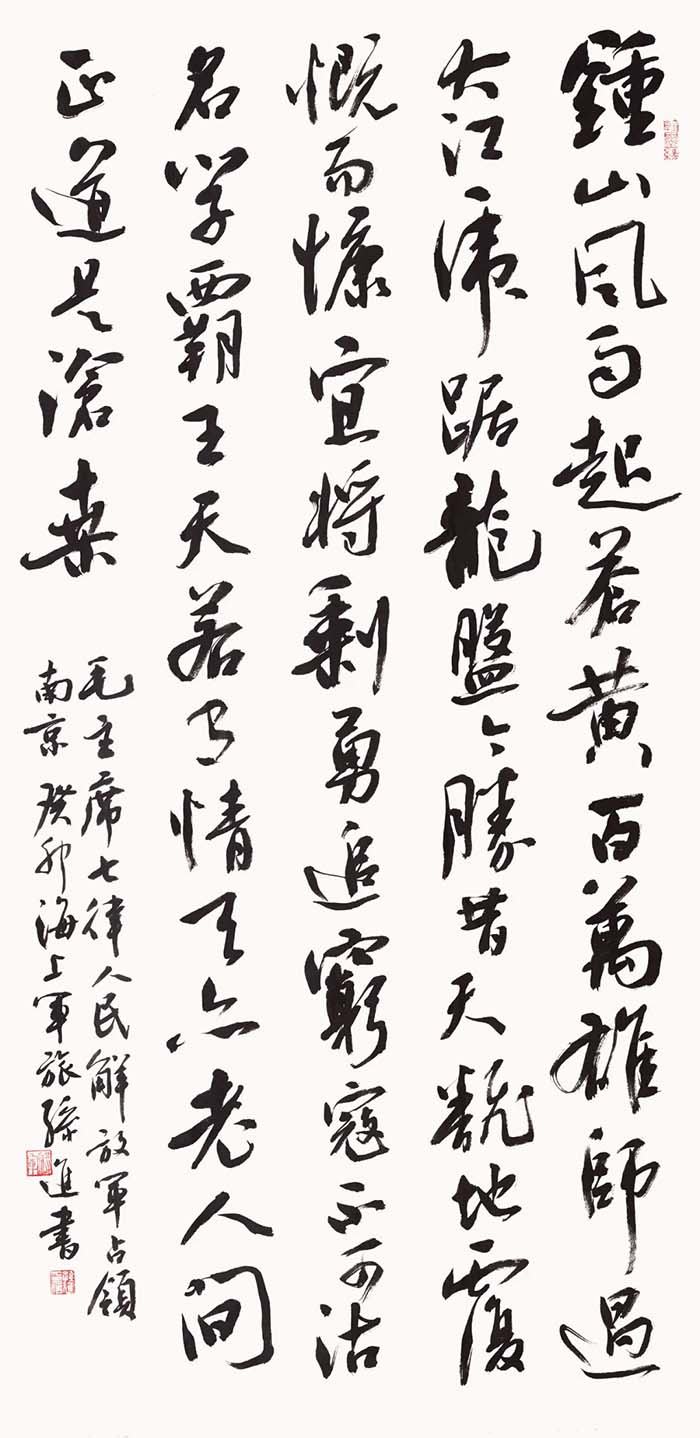 鍾山風雨起蒼黃百萬雄師過
大江虎踞龍盤今勝昔天翻地覆
慨而慷宜將剩勇追窮寇不可沽
名學霸王天若有情天亦老人間
正道是滄桑
毛主席七律人民解放軍占領
南京 癸卯海上軍旅孫進書